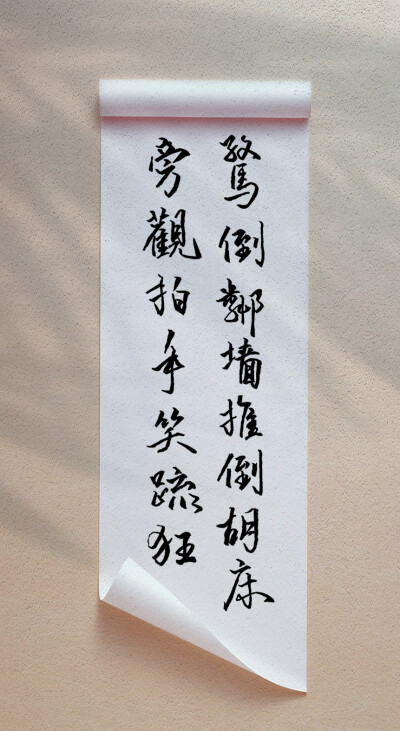 驚倒鄰墻推倒胡床
旁觀拍手笑疏狂